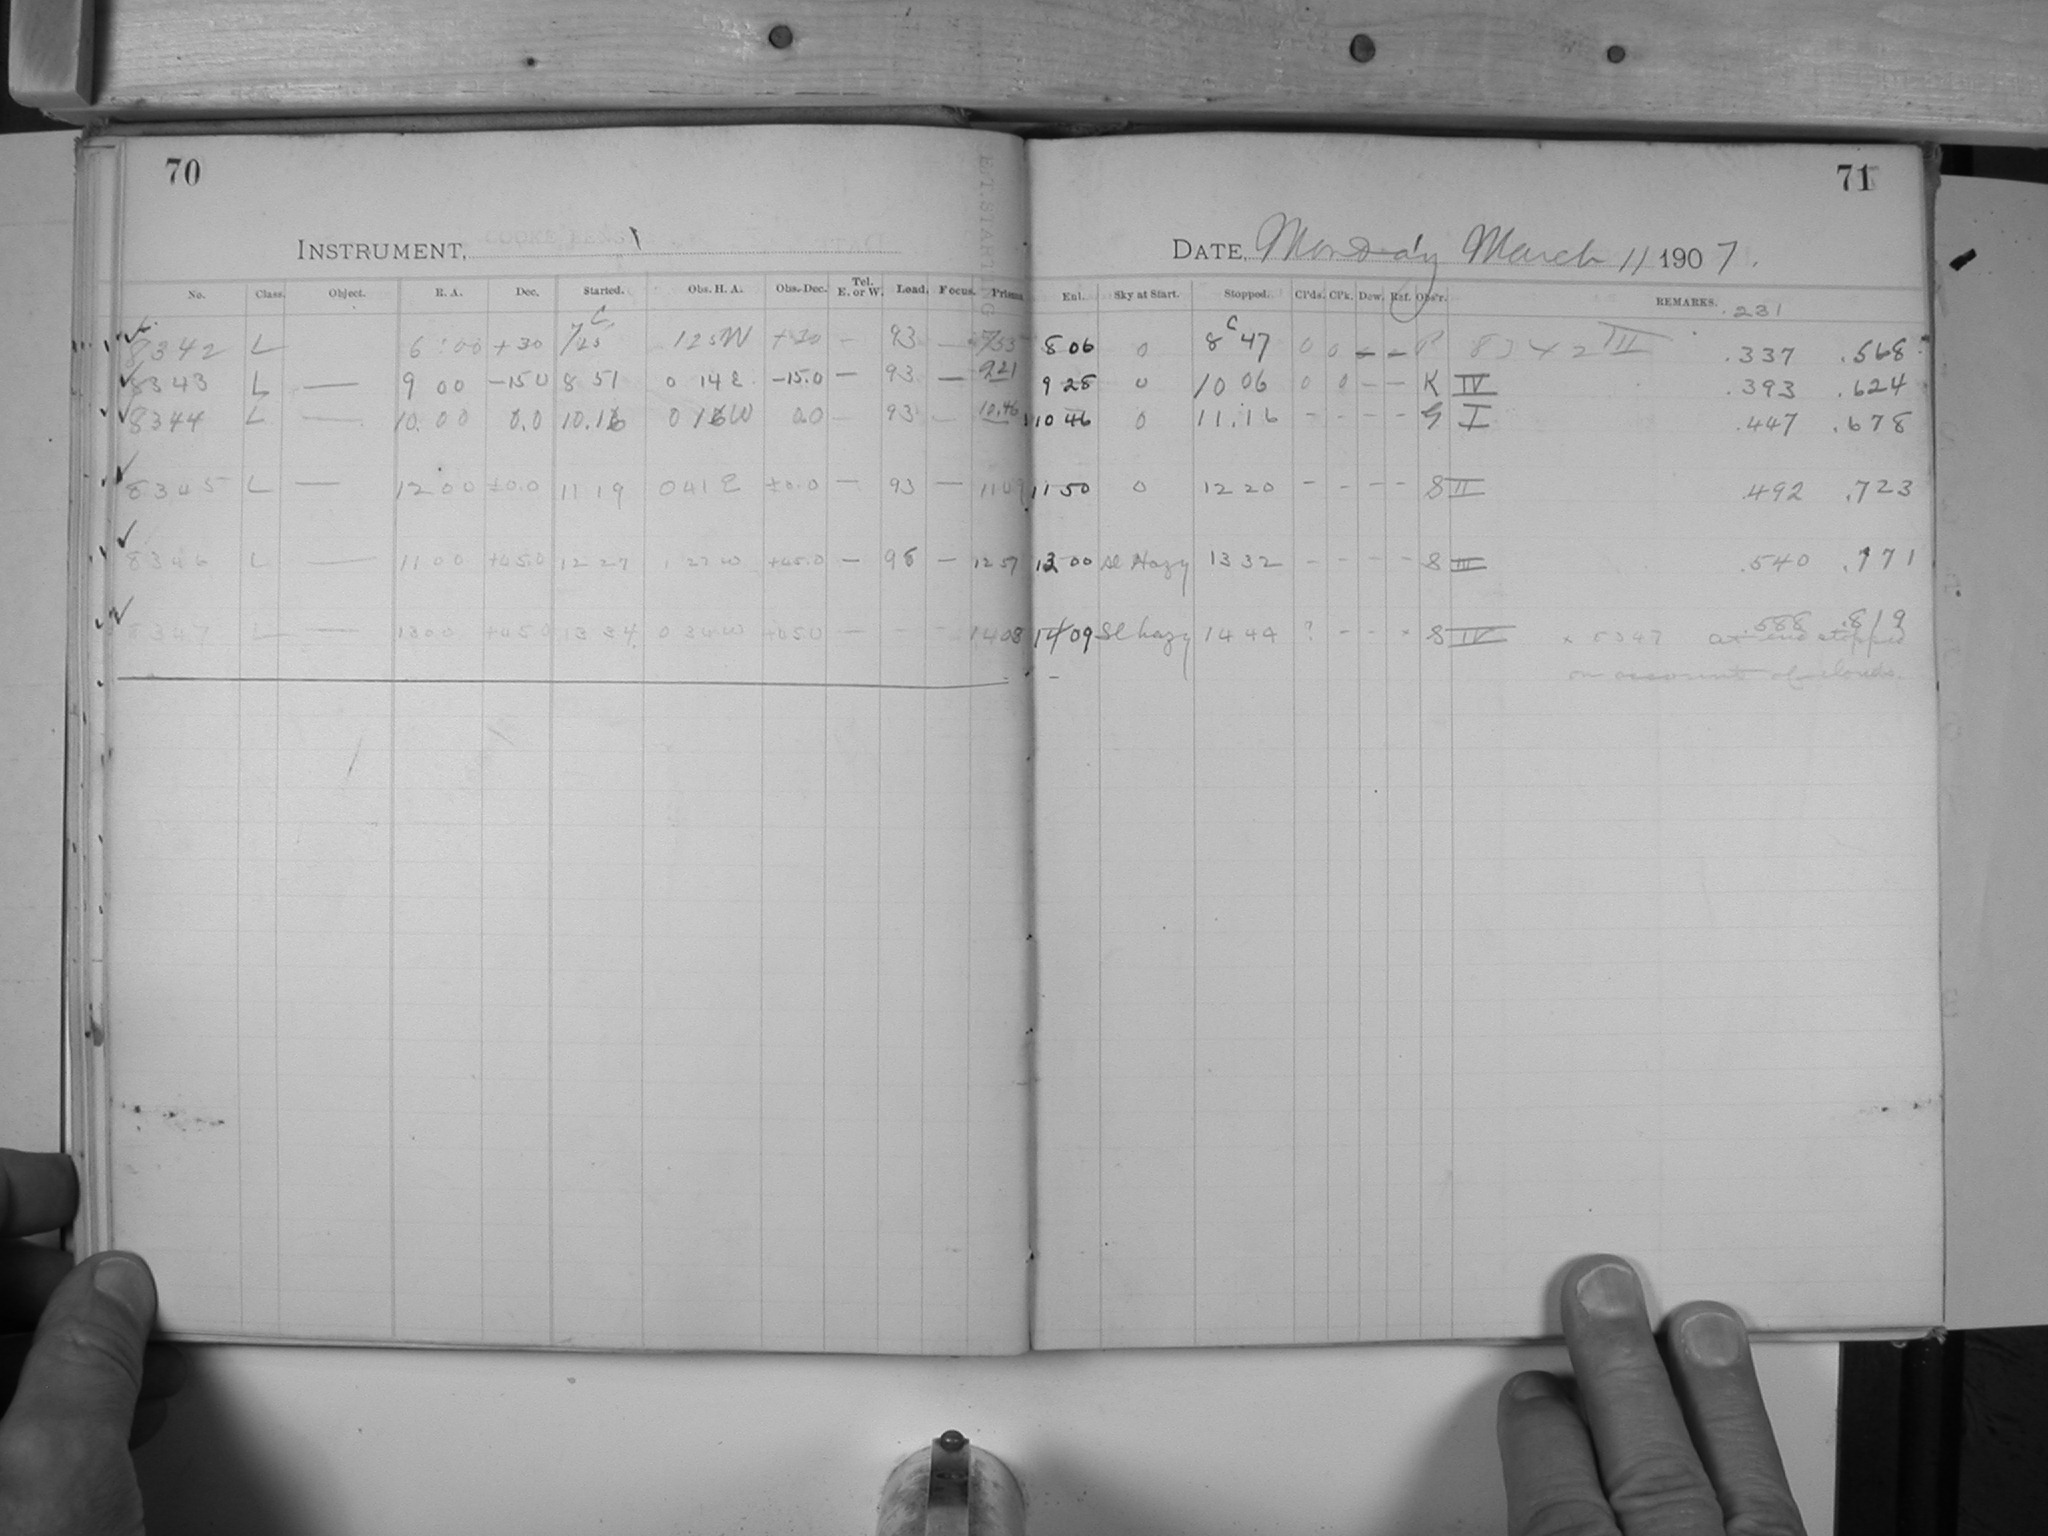 70
INSTRUMENT,
No. Class. Object. R. A. Dec. Started. Obs. H. A. Obs. Dec. Tel. E. or W. Load. Focus. Prisms
8342 L 6 00 +30 7 25 1 25 W +30 - 93 - 7 35
8343 L — 9 00 -15 0 8 51 0 14 E -15.0 - 93 - 9 21
8344 L — 10. 00 0.0 10.16 0 16 W 0.0 - 93 - 10.46
8345 L — 12 00 ±0.0 11 19 0 41 E ±0.0 - 93 - 11 49
8346 L — 11 00 +45.0 12 27 1 27 W +45.0 - 96 - 12 57
8347 L — 13 00 +45 0 13 34 0 34 W +45 0 - - - 14 08
71
DATE, Monday March 11 1907.
Enl. Sky at Start. Stopped. Cl'ds. Cl'k. Dew. Ref. Obs'r. REMARKS.
.231
8 06 0 8 47 0 0 - - P 8342 III .337 .568
9 28 0 10 06 0 0 - - K IV .393 .624
10 46 0 11.16 - - - - G I .447 .678
11 50 0 12 20 - - - - S II .492 .723
13 00 Sl Hazy 13 32 - - - - S III .540 .771
14 09 Sl hazy 14 44 ? - - - S IV .588 .819
x 8347 at end stopped
on account of clouds.